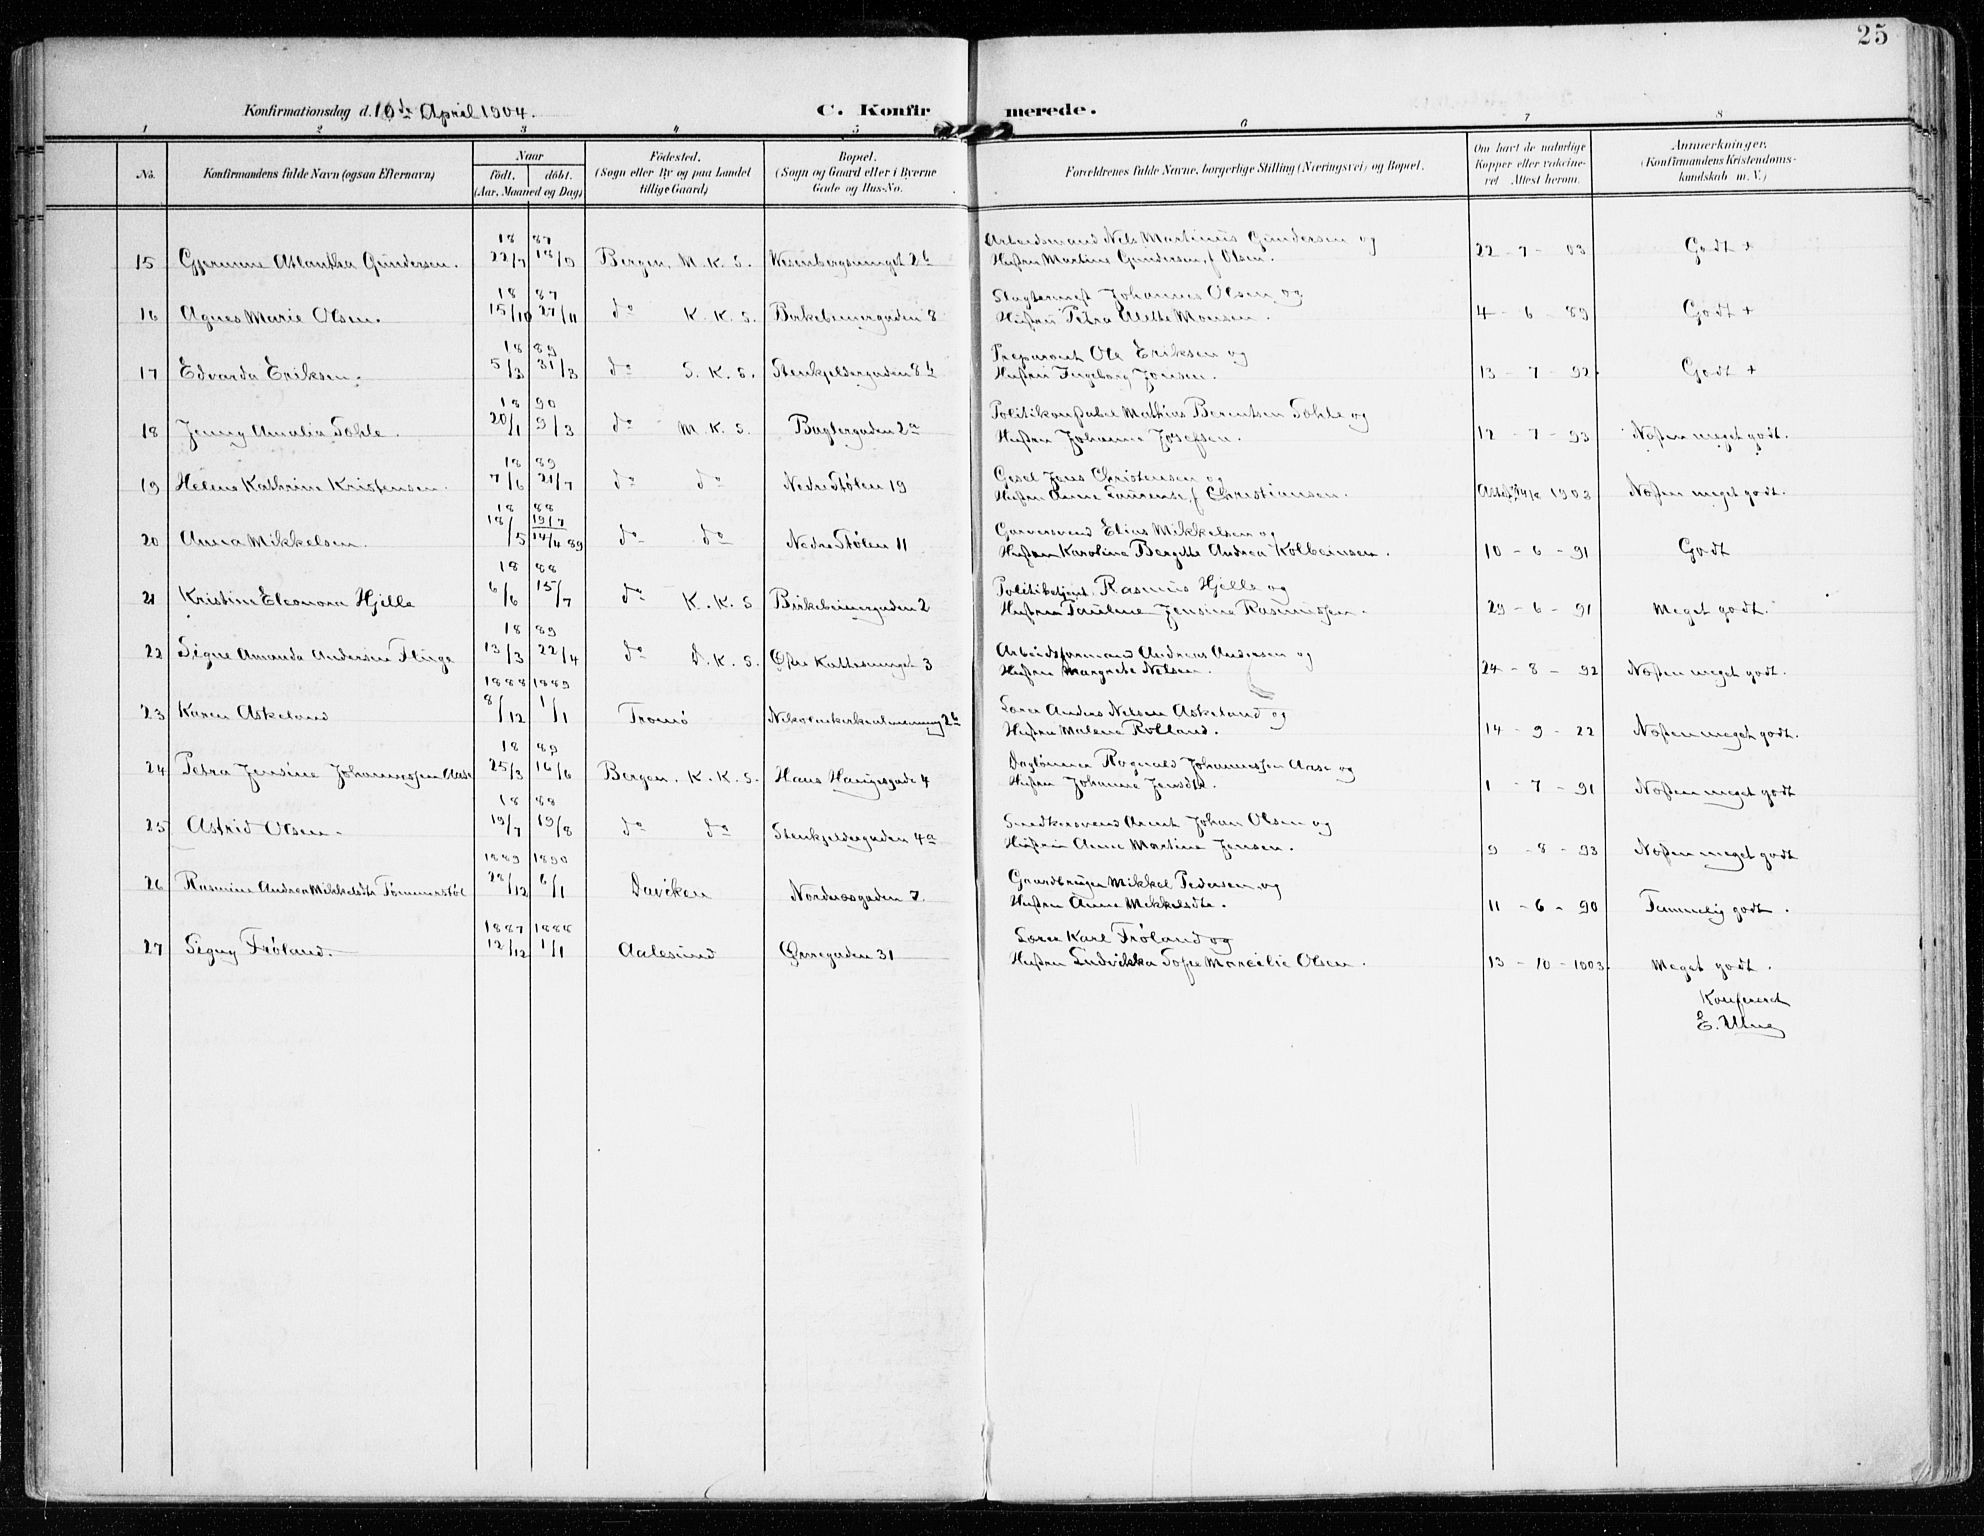 25
Konfirmationsdag d. 10de April 1904. C. Konfirmerede.
1 2 3 4 5 6 7 8
No. Konfirmandens fulde Navn (ogsaa Efternavn) Naar födt. döbt. (Aar, Maaned og Dag) Födested. (Sogn eller By og paa Landet tillige Gaard) Bopæl. (Sogn og Gaard eller i Byerne Gade og Hus-No. Forældrenes fulde Navne, borgerlige Stilling (Næringsvei) og Bopæl. Om havt de naturlige Kopper eller vakcineret Attest herom. Anmerkninger. (Konfirmandens Kristendomskundskab m. V.)
18 87 Arbeidsmand Nels Martinus Gundersen og
15 Gjermine Atlantha Gundersen. 22/7 18/9 Bergen, M. K. S. Wesenbergsmuget 2b Hustru Martine Gundersen, f Olsen. 22 - 7 - 03 Godt +
18 87 Slagtermest Johannes Olsen og
16 Agnes Marie Olsen. 15/10 27/11 do K. K. S. Birkebeinergaden 8 Hustru Petra Alette Monsen. 4 - 6 - 89 Godt +
18 89 Preparant Ole Eriksen og
17 Edvarda Eriksen. 5/3 31/3 do S. K. S. Stenkjeldergaden 8b Hustru Ingeborg Jonsen. 13 - 7 - 92. Godt +
18 90 Politikonstabel Mathias Berentsen Tohle og
18 Jenny Amalia Tohle. 20/1 9/3 do M. K. S. Bagtergaden 2a Hustru Johanne Josefsen. 12 - 7 - 93 Næsten meget godt.
18 89 Gesel Jens Christensen og
19 Helene Kathrine Kristensen. 7/6 21/7 do do Nedre Stølen 19 Hustru Anne Laurense f Christiansen. 1903 Næsten meget godt.
18 88 Garversvend Elias Mikkelsen og
20 Anna Mikkelsen. 18/5 19/7 14/4 89 do do Nedre Stølen 11 Hustru Karolina Bergitte Andrea Kolbeinsen. 10 - 6 - 91 Godt
18 88 Politibetjent Rasmus Hjelle og
21 Kristine Eleonora Hjelle 6/6 15/7 do K. K. S Birkebeinergaden 2 Hustru Pauline Jensine Rasmussen. 29 - 6 - 91 Meget godt.
18 89 Arbeidsformand Andreas Andersen og
22 Signe Amanda Andersen Fluge 13/3 22/4 do D. K. S. Øfre Kattesmuget 3 Hustru Margrete Nelsen. 24 - 8 - 92 Næsten meget godt.
1888 1889 Lærer Anders Nelsen Askeland og
23 Karen Askeland 8/12 1/1 Tromö Nikolaikirkealmenning 2b Hustru Malene Rolland. 14 - 9 - 22 Næsten meget godt.
18 89 Daglønner Ragnald Johannessen Aase og
24 Petra Jensine Johannessen Aase 25/3 16/6 Bergen. K. K. S. Hans Haugesgade 4 Hustru Johanne Jensdtr. 1 - 7 - 91 Næsten meget godt
18 88 Snedkersvend Arent Johan Olsen og
25 Astrid Olsen. 19/7 19/8 do do Stenkjeldergaden 4a Hustru Anne Martine Jensen. 9 - 8 - 93 Næsten meget godt
1889 1890 Gaardbruger Mikkel Pedersen og
26 Rasmine Andrea Mikkelsdtr Tømmerstöl 28/12 6/1 Daviken Nordnæsgaden 7. Hustru Anne Mikkelsdtr. 11 - 6 - 90 Temmelig godt.
1887 1888 Lærer Karl Frøland og
27 Signy Frøland. 12/12 1/1 Aalesund Øvregaden 31 Hustru Ludvikka Tofie Marcilie Olsen. 13 - 10 - 1903. Meget godt.
Konfereret